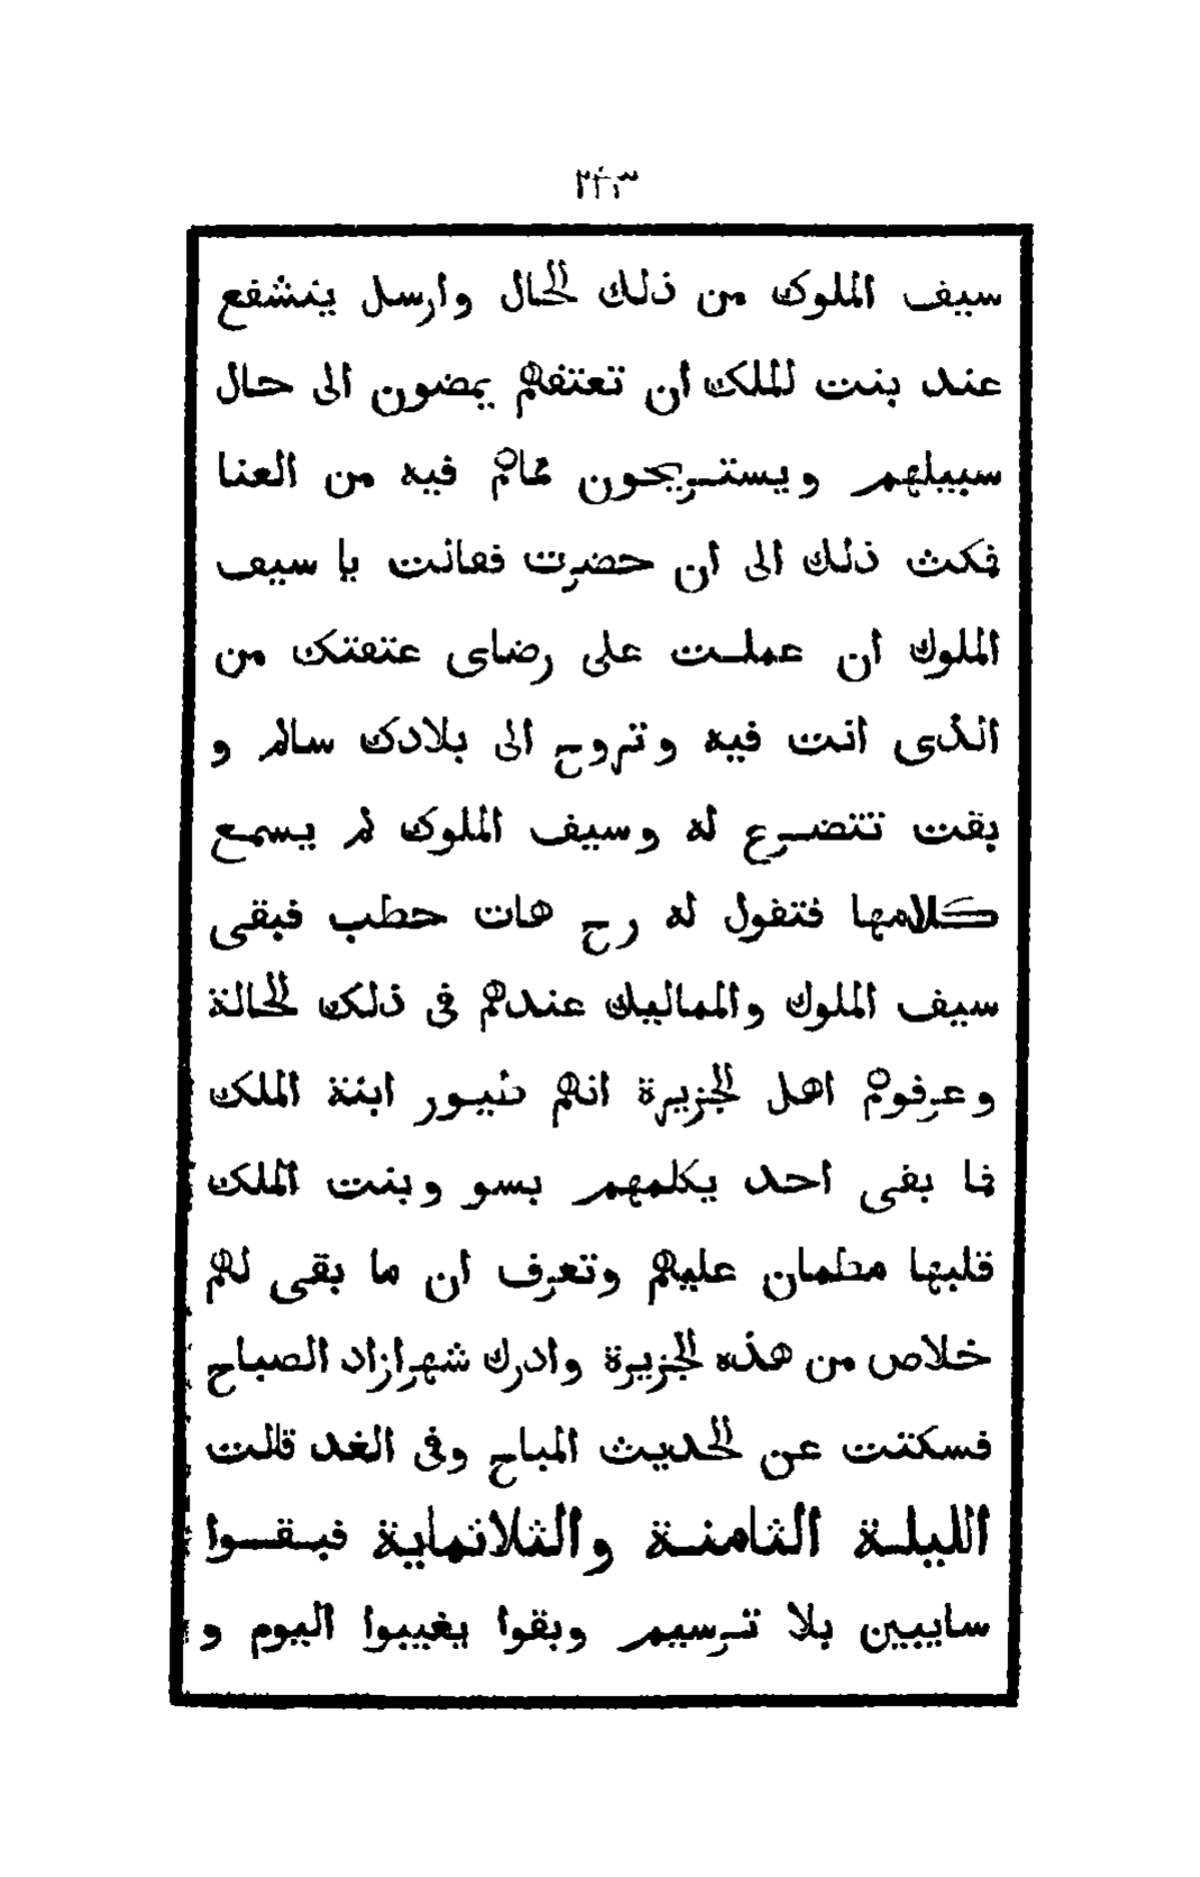 ٢٤٣
سيف الملوك من ذلك الحال وارسل يتشفع
عند بنت الملك ان تعتقهم يمضون الى حال
سبيلهم ويستريحون مماهم فيه من العنا
فكث ذلك الى ان حضرت فقالت يا سيف
الملوك ان عملت على رضاى عتقتك من
الذى انت فيه وتروح الى بلادك سالم و
بقت تتضرع له وسيف الملوك لم يسمع
كلامها فتقول له رح هات حطب فبقى
سيف الملوك والمماليك عندهم فى ذلك الحالة
وعرفوهم اهل الجزيرة انهم طيور ابنة الملك
فما بقى احد يكلمهم بسو وبنت الملك
قلبها مطمان عليهم وتعرف ان ما بقى لهم
خلاص من هذه الجزيرة وادرك شهرازاد الصباح
فسكتت عن الحديث المباح وفى الغد قالت
الليلة الثامنة والثلاثماية فبقوا
سايبين بلا ترسيم وبقوا يغيبوا اليوم و